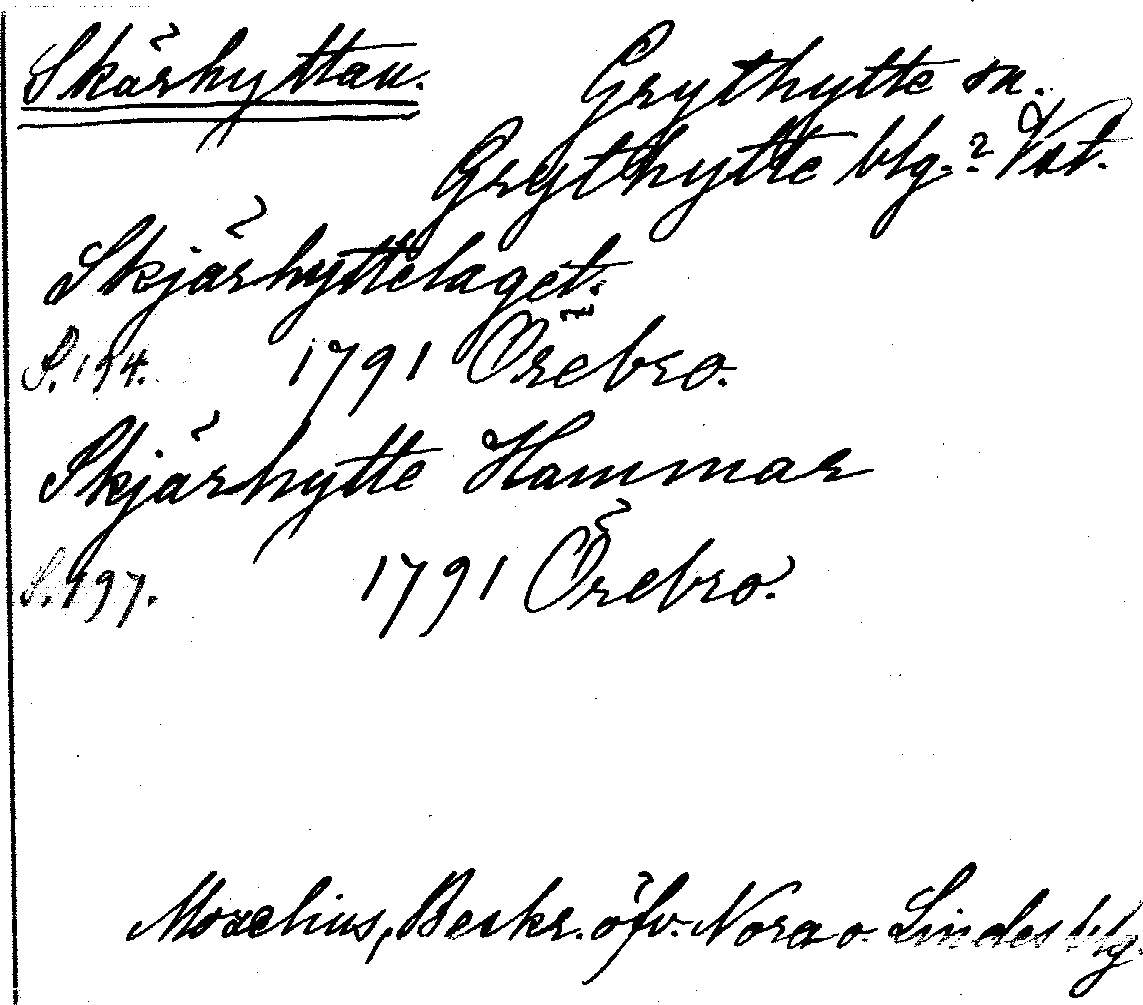 Skärhyttan. Grythytte sn.
Grythytte blg.? Vstl.
Skjärhyttelaget.
S. 194. 1791 Örebro.
Skjärhytte Hammar
S. 197. 1791 Örebro.
Morelius, Beskr. öfv. Nora o. Lindes blg.